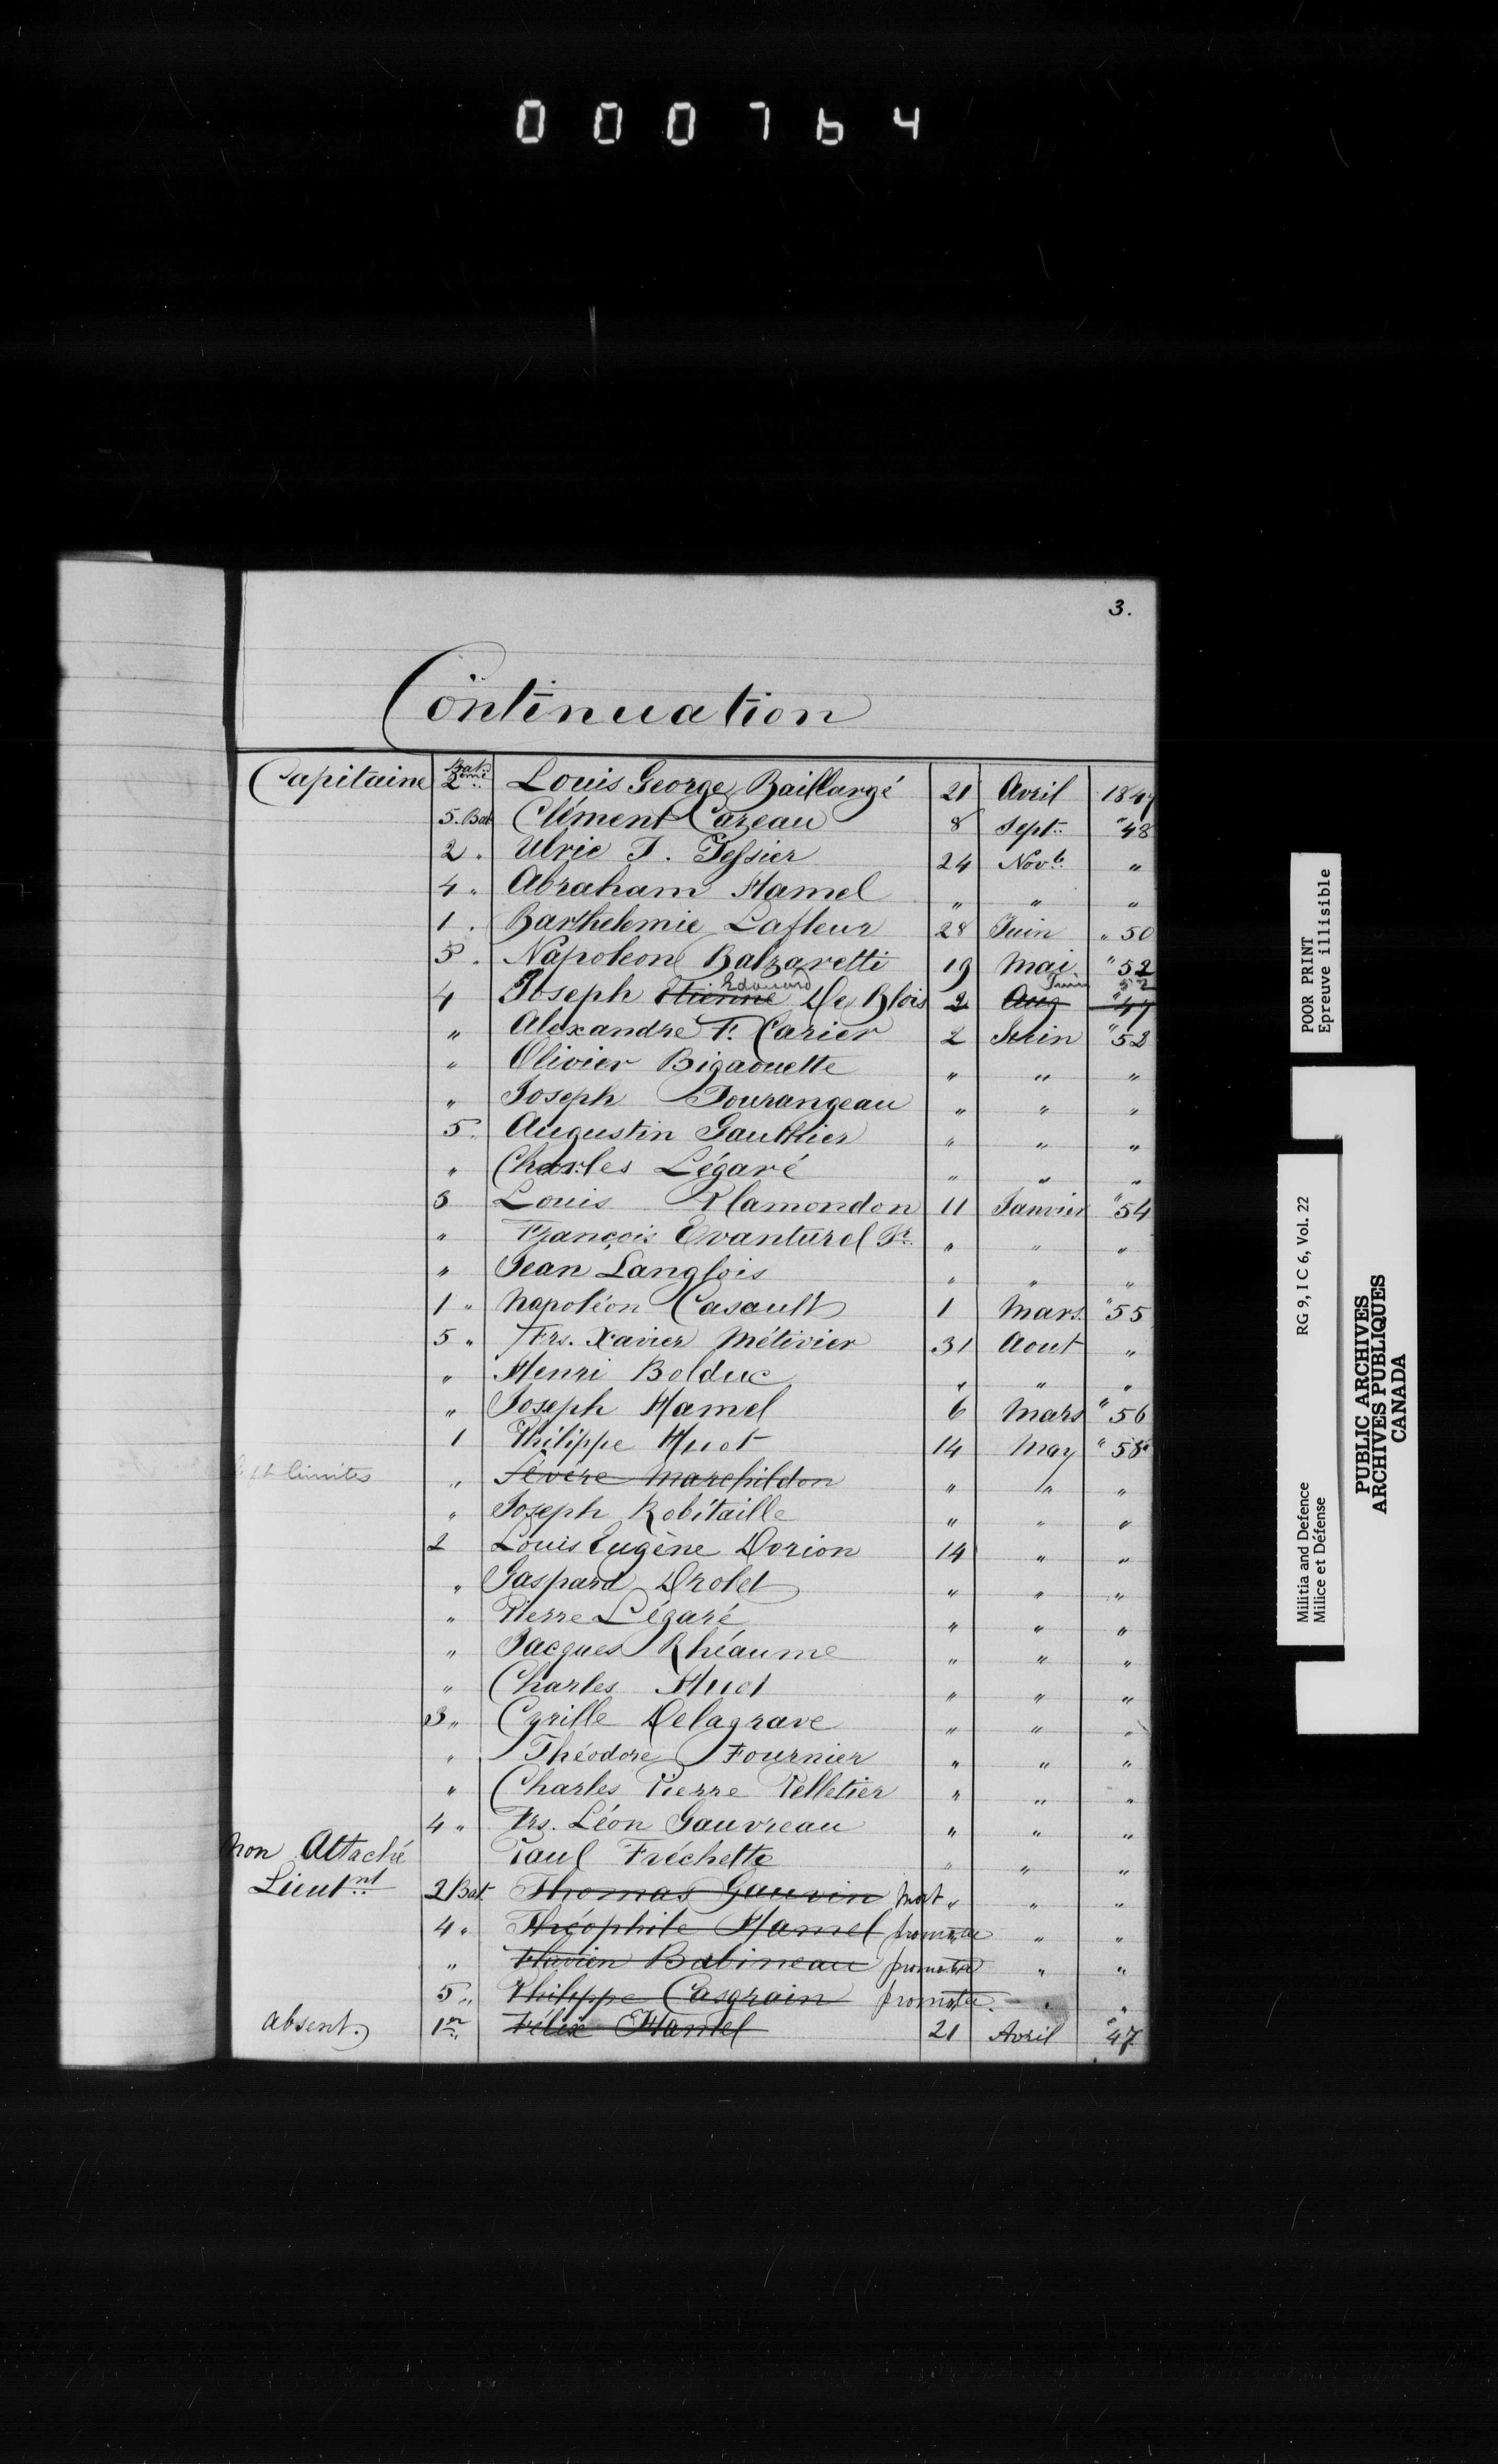 000764
3.
Continuation
Capitaine Bat. 2ème Louis George Baillargé 21 Avril 1847
5. Bat Clément Cazeau 8 Sept. " 48
2 . Ulric J. Tessier 24 Novb. "
4 " Abraham Hamel " " "
1 . Barthelemie Lafleur 28 Juin " 50
5 . Napoleon Balzaretti 19 Mai " 52
4 Joseph Etienne Edouard De Blois 2 Aug Juin " 47 52
" Alexandre F. Carier 2 Juin " 52
" Olivier Bigaouette " " "
" Joseph Tourangeau " " "
5 " Augustin Gauthier " " "
" Charles Légaré " " "
3 Louis Plamondon 11 Janvier " 54
" François Evanturel Jr. " " "
" Jean Langlois " " "
1 " Napoléon Casault 1 Mars " 55
5 " Frs. Xavier Métivier 31 Aout "
" Henri Bolduc " " "
" Joseph Hamel 6 Mars " 56
1 Philippe Huot 14 May " 58
limites " Sévère Marchildon " " "
" Joseph Robitaille " " "
2 Louis Eugène Dorion 14 " "
" Gaspard Drolet " " "
" Pierre Légaré " " "
" Jacques Rhéaume " " "
" Charles Huot " " "
3 " Cyrille Delagrave " " "
" Théodore Fournier " " "
" Charles Pierre Pelletier " " "
4 " Frs. Léon Gauvreau " " "
Non Attaché Paul Fréchette " " "
Lieutnt 2 Bat Thomas Gauvin Mort " " "
4 " Théophile Hamel " "
" Flavien Babineau " "
5 " Philippe Casgrain " "
absent. 1er Félix Hamel 21 Avril " 47
POOR PRINT
Epreuve illisible
Militia and Defence RG 9, I C 6, Vol. 22
Milice et Défense
PUBLIC ARCHIVES
ARCHIVES PUBLIQUES
CANADA